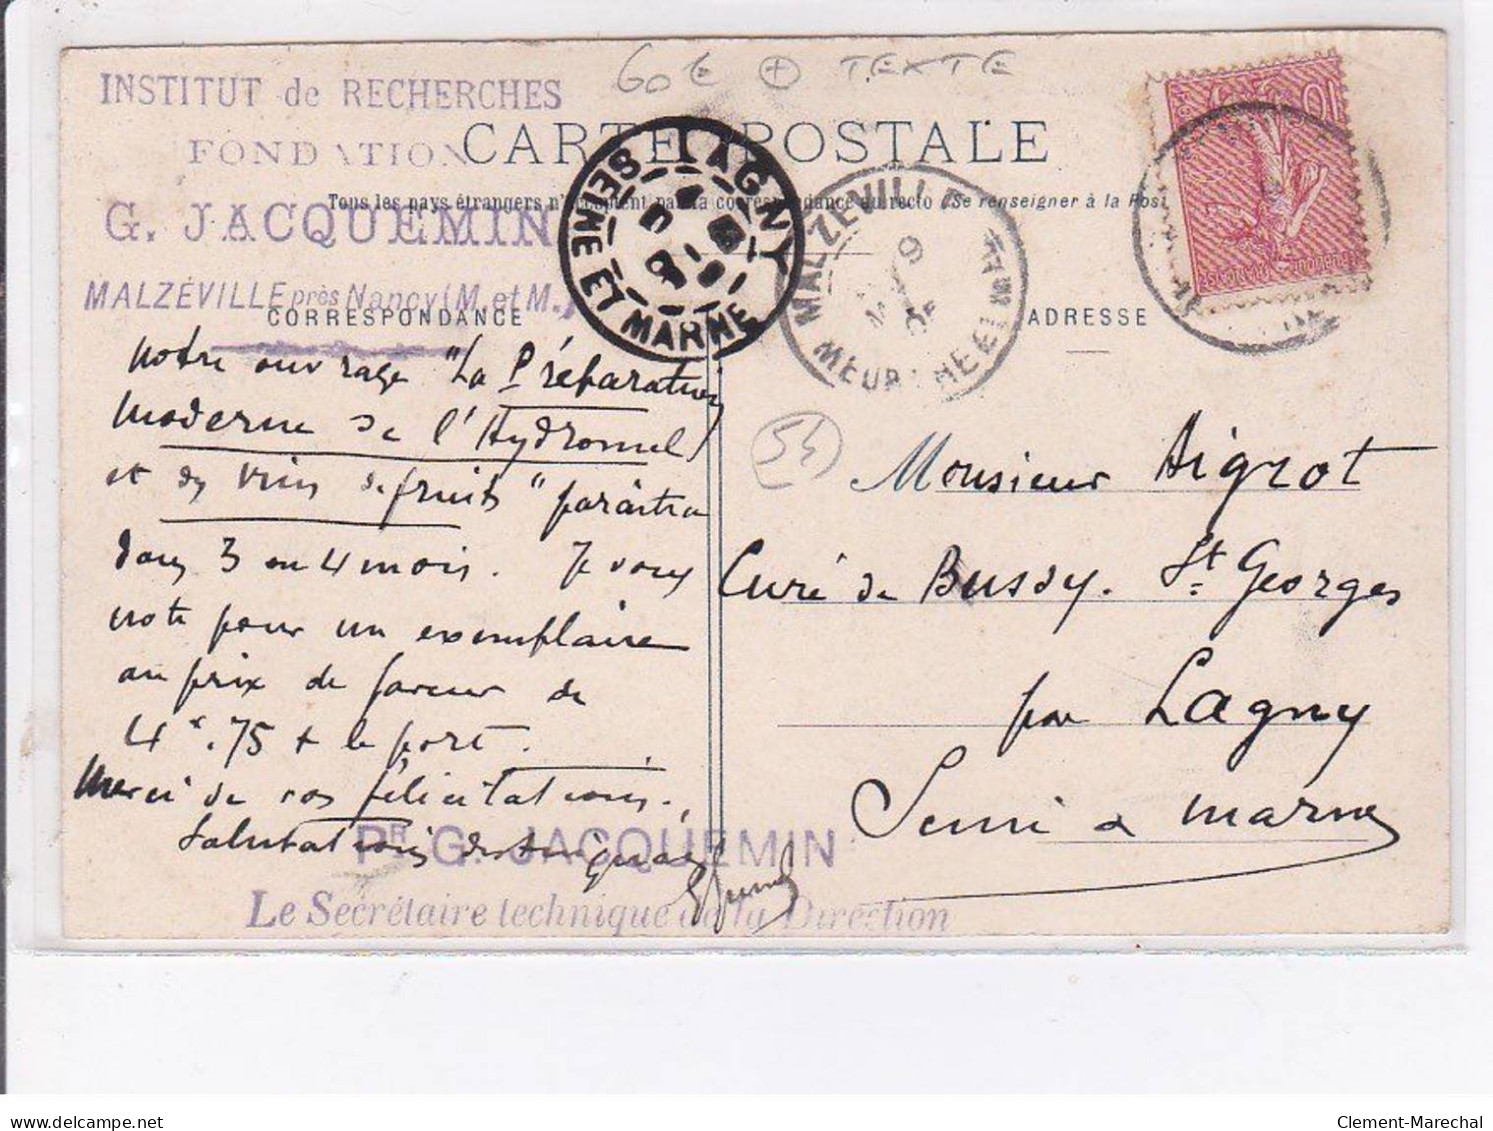 INSTITUT de RECHERCHES
FONDATION
G. JACQUEMIN
MALZÉVILLE près Nancy (M. et M.)
60 € + TEXTE
CARTE POSTALE
Tous les pays étrangers n'acceptent pas la correspondance au recto (Se renseigner à la Post
LAGNY
SEINE ET MARNE
MALZEVILLE
MEURTHE ET M
CORRESPONDANCE
ADRESSE
notre ouvrage "La Préparation
moderne de l'Hydromel
et des vins de fruits" paraîtra
dans 3 ou 4 mois. Je vous
note pour un exemplaire
au prix de faveur de
4 f. 75 + le port.
Merci de vos félicitations.
Salutations distinguées
Pr G. JACQUEMIN
Le Secrétaire technique de la Direction
54
Monsieur Aigrot
Curé de Bussy. St Georges
par Lagny
Seine & Marne
Clement-Marechal
delcampe.net